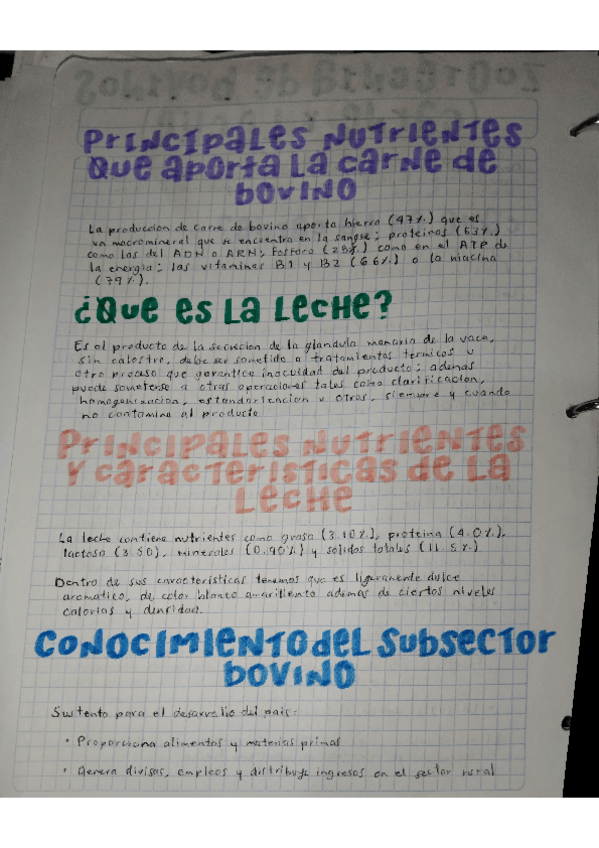 Principales nutrientes
que aporta la carne de
bovino
La produccion de carne de bovino aporta hierro (47%) que es
un macromineral que se encuentra en la sangre; proteinas (63%)
como las del ADN o ARN; fosforo (28%) como en el ATP de
la energia; las vitaminas B1 y B2 (66%) o la niacina
(79%).
¿Que es la leche?
Es el producto de la secrecion de la glandula mamaria de la vaca,
sin calostro, debe ser sometido a tratamientos termicos u
otro proceso que garantice inocuidad del producto; ademas
puede someterse a otras operaciones tales como clarificacion,
homogenizacion, estandarizacion u otros, siempre y cuando
no contamine al producto
Principales nutrientes
y caracteristicas de la
leche
La leche contiene nutrientes como grasa (3.10%), proteina (4.0%),
lactosa (3.50), minerales (0.90%) y solidos totales (11.5%)
Dentro de sus caracteristicas tenemos que es ligeramente dulce
aromatico, de color blanco amarillento ademas de ciertos niveles
calorias y densidad.
Conocimiento del subsector
bovino
Sustento para el desarrollo del pais:
• Proporciona alimentos y materias primas
• Genera divisas, empleos y distribuye ingresos en el sector rural